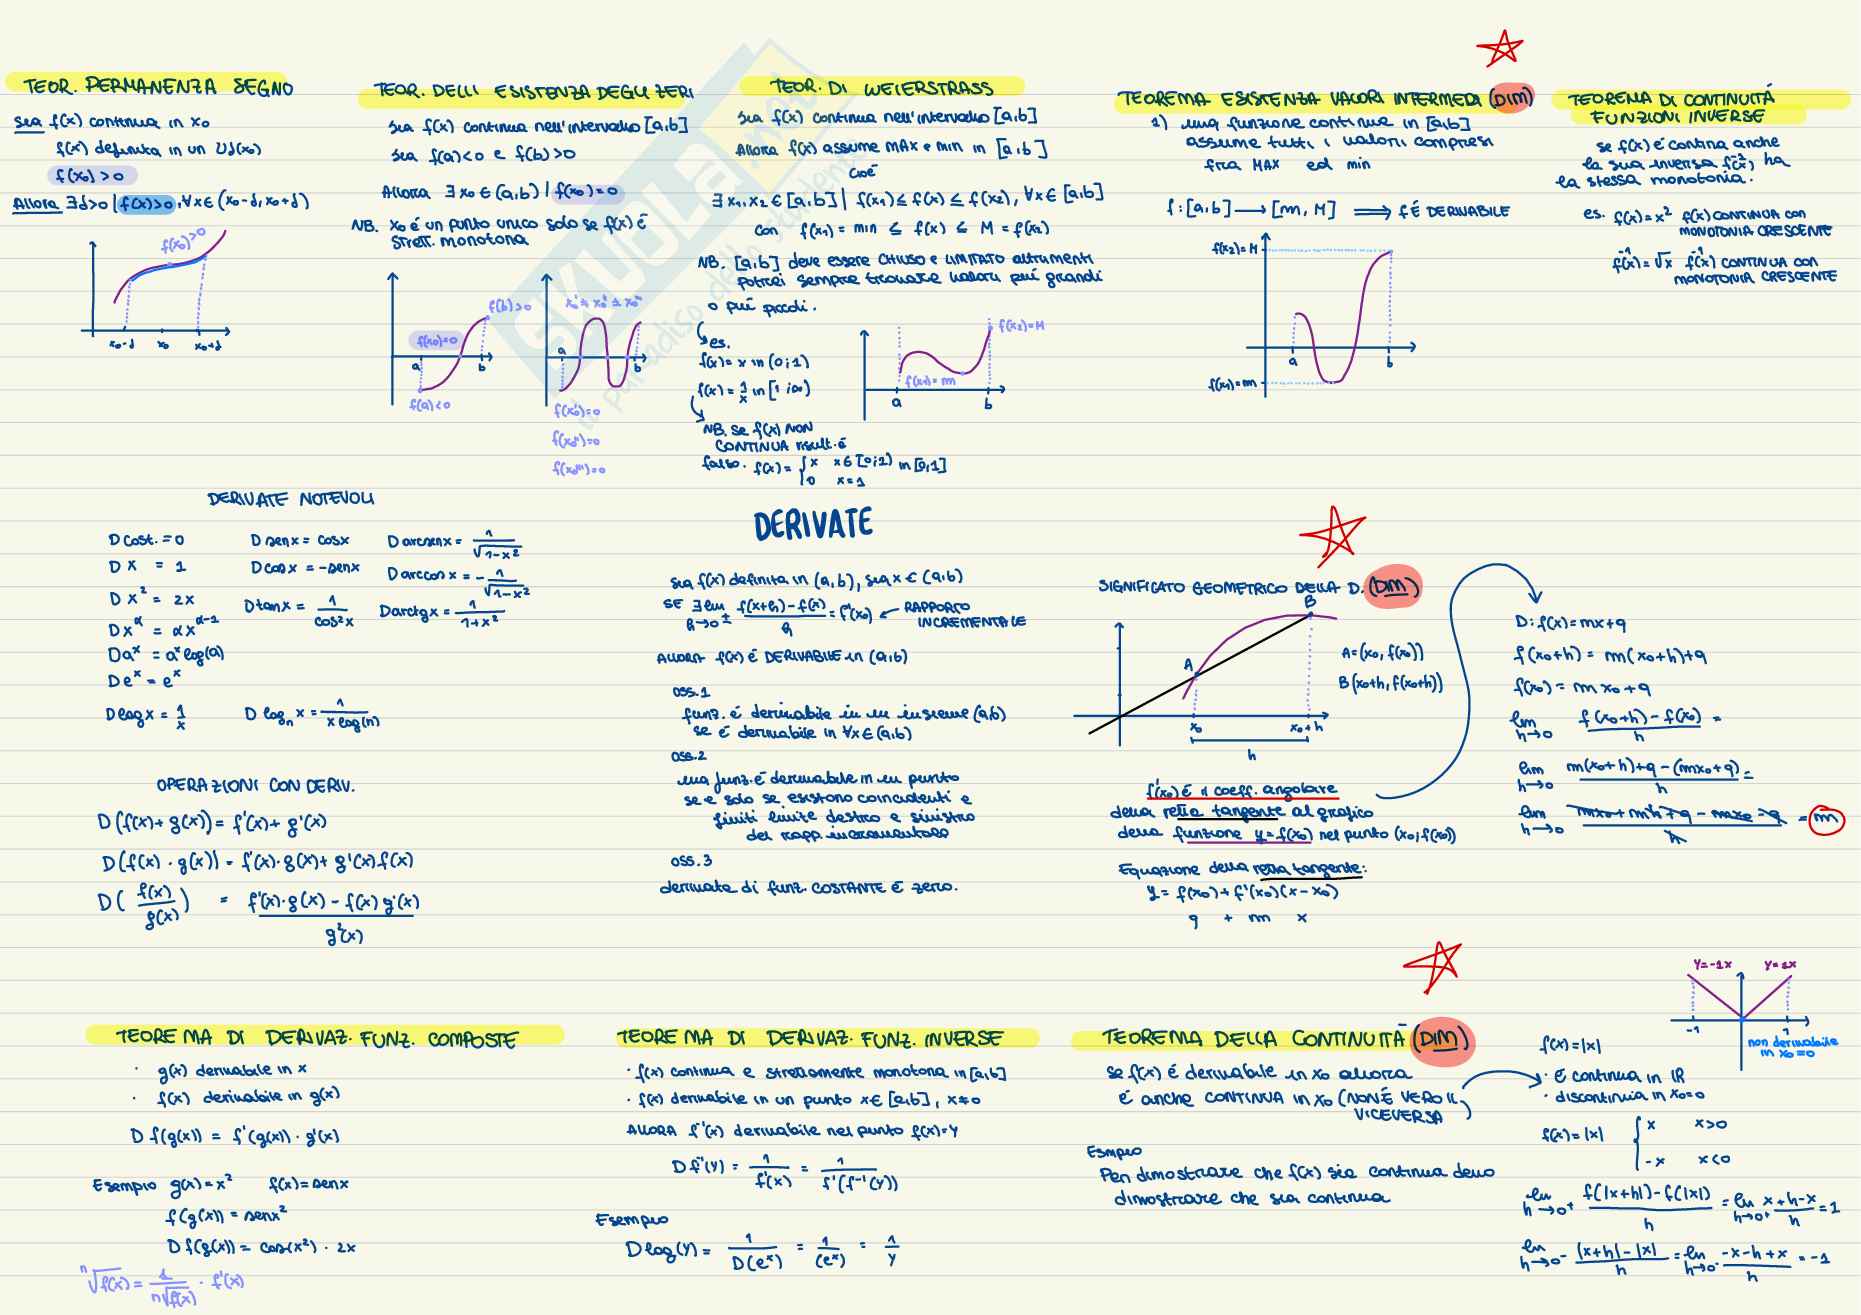 TEOR. PERMANENZA SEGNO
Sia f(x) continua in x₀
f(x) definita in un Ud(x₀)
f(x₀) > 0
Allora ∃d>0 | f(x)>0, ∀x∈(x₀-d, x₀+d)
f(x₀)>0
x₀-d x₀ x₀+d
TEOR. DELLI ESISTENZA DEGLI ZERI
Sia f(x) continua nell'intervallo [a,b]
Sia f(a)<0 e f(b)>0
Allora ∃ x₀∈(a,b) | f(x₀)=0
NB. x₀ é un punto unico solo se f(x) é
strett. monotona
f(b)>0
f(x₀)=0
a b
f(a)<0
x₀' ≠ x₀'' ≠ x₀'''
a b
f(x₀')=0
f(x₀'')=0
f(x₀''')=0
TEOR. DI WEIERSTRASS
Sia f(x) continua nell'intervallo [a,b]
Allora f(x) assume MAX e min in [a,b]
cioé
∃ x₁,x₂ ∈ [a,b] | f(x₁) ≤ f(x) ≤ f(x₂), ∀x∈[a,b]
con f(x₁) = min ≤ f(x) ≤ M = f(x₂)
NB. [a,b] deve essere CHIUSO e LIMITATO altrimenti
potrei sempre trovare valori piú grandi
o piú piccoli.
es.
f(x)=x in (0;1)
f(x)=1/x in [1;∞)
NB. se f(x) NON
CONTINUA risult. é
falso. f(x)= { x x∈[0;1) in [0,1]
0 x=1
f(x₂)=M
f(x₁)=m
a b
TEOREMA ESISTENZA VALORI INTERMEDI (DIM)
1) una funzione continua in [a,b]
assume tutti i valori compresi
fra MAX ed min
f:[a,b] → [m, M] ⟹ f É DERIVABILE
f(x₂)=M
a b
f(x₁)=m
TEOREMA DI CONTINUITÁ
FUNZIONI INVERSE
se f(x) é continua anche
la sua inversa f⁻¹(x), ha
la stessa monotonia.
es. f(x)=x² f(x) CONTINUA con
MONOTONIA CRESCENTE
f⁻¹(x)=√x f⁻¹(x) CONTINUA con
MONOTONIA CRESCENTE
SKUOLA.net
il paradiso dello studente
DERIVATE NOTEVOLI
D cost. = 0 D senx = cosx D arcsenx = 1/√(1-x²)
D x = 1 D cosx = -senx D arccosx = -1/√(1-x²)
D x² = 2x D tanx = 1/cos²x D arctgx = 1/(1+x²)
D x^α = αx^(α-1)
D a^x = a^x log(a)
D e^x = e^x
D logx = 1/x D logₙx = 1/(x log(n))
OPERAZIONI CON DERIV.
D(f(x)+g(x)) = f'(x)+g'(x)
D(f(x)·g(x)) = f'(x)·g(x)+g'(x)f(x)
D(f(x)/g(x)) = (f'(x)·g(x) - f(x)g'(x))/g²(x)
DERIVATE
sia f(x) definita in (a,b), sia x∈(a,b)
SE ∃ lim h→0± (f(x+h)-f(x))/h = f'(x₀) ← RAPPORTO
INCREMENTALE
ALLORA f(x) é DERIVABILE in (a,b)
OSS.1
funz. é derivabile in un insieme (a,b)
se é derivabile in ∀x∈(a,b)
OSS.2
una funz. é derivabile in un punto
se e solo se esistono coincidenti e
finiti limite destro e sinistro
del rapp. incrementale
OSS.3
derivata di funz. COSTANTE é zero.
SIGNIFICATO GEOMETRICO DELLA D. (DIM)
B
A
A=(x₀, f(x₀))
B(x₀+h, f(x₀+h))
x₀ x₀+h
h
f'(x₀) é il coeff. angolare
della retta tangente al grafico
della funzione y=f(x₀) nel punto (x₀;f(x₀))
Equazione della retta tangente:
y = f(x₀)+f'(x₀)(x-x₀)
q + m x
D: f(x)=mx+q
f(x₀+h) = m(x₀+h)+q
f(x₀) = mx₀+q
lim h→0 (f(x₀+h)-f(x₀))/h =
lim h→0 (m(x₀+h)+q-(mx₀+q))/h =
lim h→0 (mx₀+mh+q-mx₀-q)/h = m
TEOREMA DI DERIVAZ. FUNZ. COMPOSTE
· g(x) derivabile in x
· f(x) derivabile in g(x)
D f(g(x)) = f'(g(x))·g'(x)
Esempio g(x)=x² f(x)=senx
f(g(x)) = senx²
D f(g(x)) = cos(x²)·2x
ⁿ√f(x) = 1/(n√f(x)) · f'(x)
TEOREMA DI DERIVAZ. FUNZ. INVERSE
· f(x) continua e strettamente monotona in [a,b]
· f(x) derivabile in un punto x∈[a,b], x≠0
ALLORA f⁻¹(x) derivabile nel punto f(x)=y
D f⁻¹(y) = 1/f'(x) = 1/f'(f⁻¹(y))
Esempio
D log(y) = 1/D(e^x) = 1/(e^x) = 1/y
TEOREMA DELLA CONTINUITÁ (DIM)
se f(x) é derivabile in x₀ allora
É anche CONTINUA in x₀ (NON É VERO IL
VICEVERSA)
Esmpio
Per dimostrare che f(x) sia continua devo
dimostrare che sia continua
y=-1x y=1x
-1 1
non derivabile
in x₀=0
f(x)=|x|
· É continua in IR
· discontinua in x₀=0
f(x)=|x| { x x>0
-x x<0
lim h→0⁺ (f(|x+h|)-f(|x|))/h = lim h→0⁺ (x+h-x)/h = 1
lim h→0⁻ (|x+h|-|x|)/h = lim h→0⁻ (-x-h+x)/h = -1